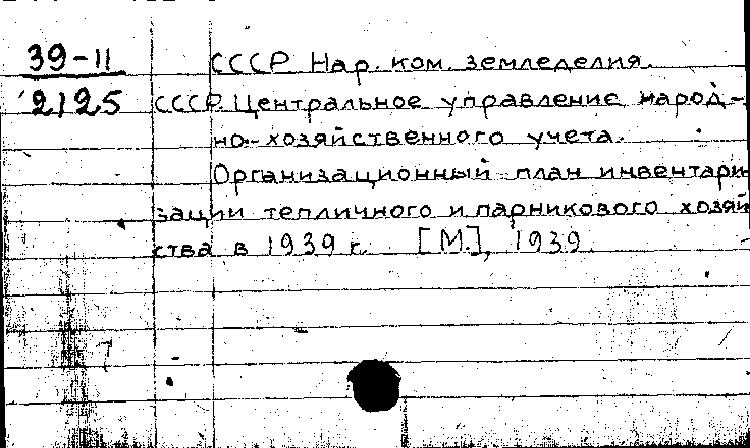 39-11 СССР. Нар. ком. земледелия.
2125 СССР. Центральное управление народ-
но-хозяйственного учета.
Организационный план инвентари
зации тепличного и парникового хозяй
ства в 1939 г. [М.], 1939.